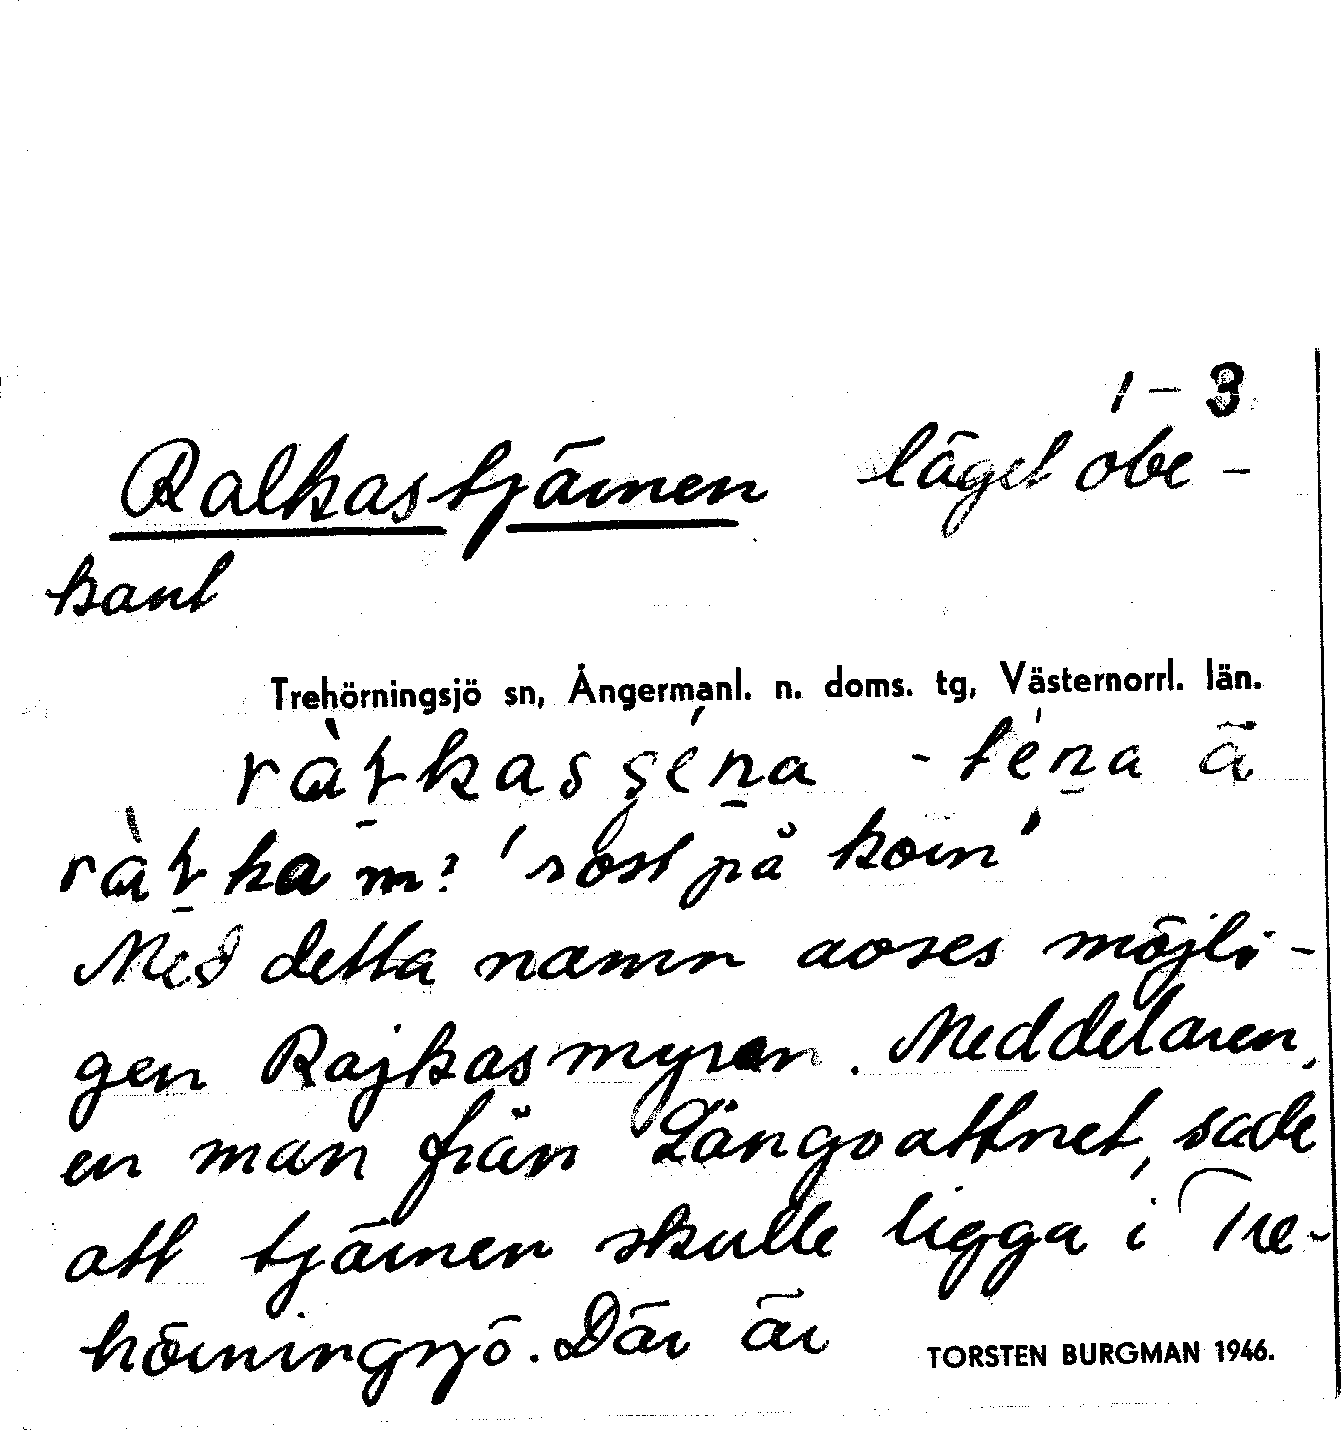 1 – 3
Ralkastjärnen läget obe-
kant
Trehörningsjö sn, Ångermanl. n. doms. tg, Västernorrl. län.
- ä
'rost på korn'
Med detta namn avses möjli-
gen Rajkasmyran. Meddelaren,
en man från Långvattnet, sade
att tjärnen skulle ligga i Tre-
hörningsjö. Där är
TORSTEN BURGMAN 1946.